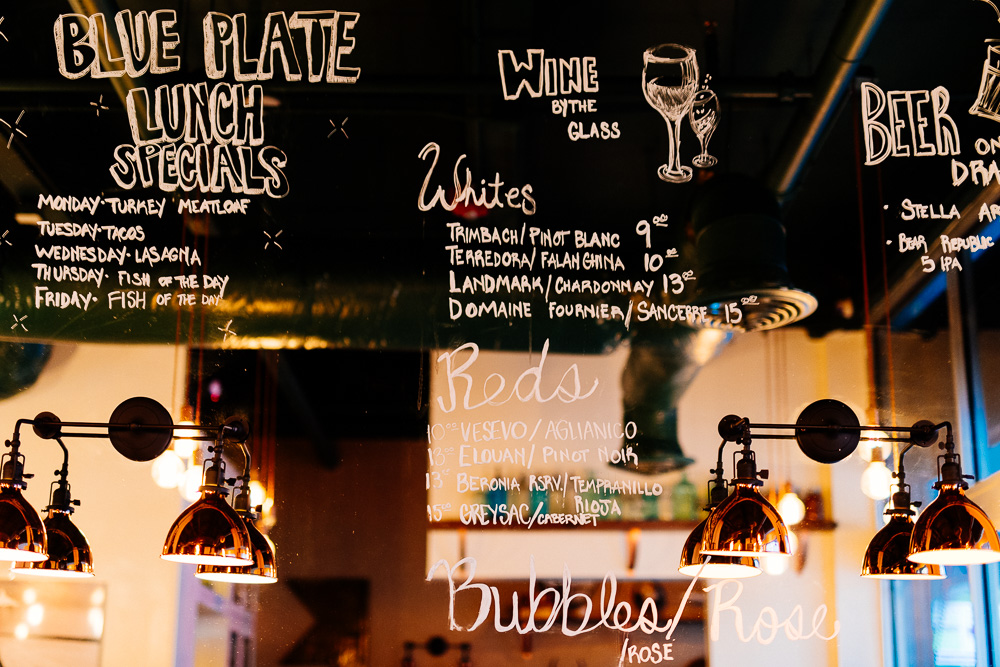 BLUE PLATE
LUNCH
SPECIALS
MONDAY·TURKEY MEATLOAF
TUESDAY·TACOS
WEDNESDAY·LASAGNA
THURSDAY· FISH OF THE DAY
FRIDAY· FISH OF THE DAY
WINE
BY THE
GLASS
Whites
TRIMBACH/PINOT BLANC 9⁰⁰
TERREDORA/FALANGHINA 10⁰⁰
LANDMARK/CHARDONNAY 13⁰⁰
DOMAINE FOURNIER/SANCERRE 15⁰⁰
Reds
10⁰⁰ VESEVO/AGLIANICO
13⁰⁰ ELOUAN/PINOT NOIR
13⁰⁰ BERONIA RSRV./TEMPRANILLO
RIOJA
15⁰⁰ GREYSAC/CABERNET
Bubbles/Rose
/ROSE
BEER
ON
DRA
· STELLA AR
· BEAR REPUBLIC
5 IPA